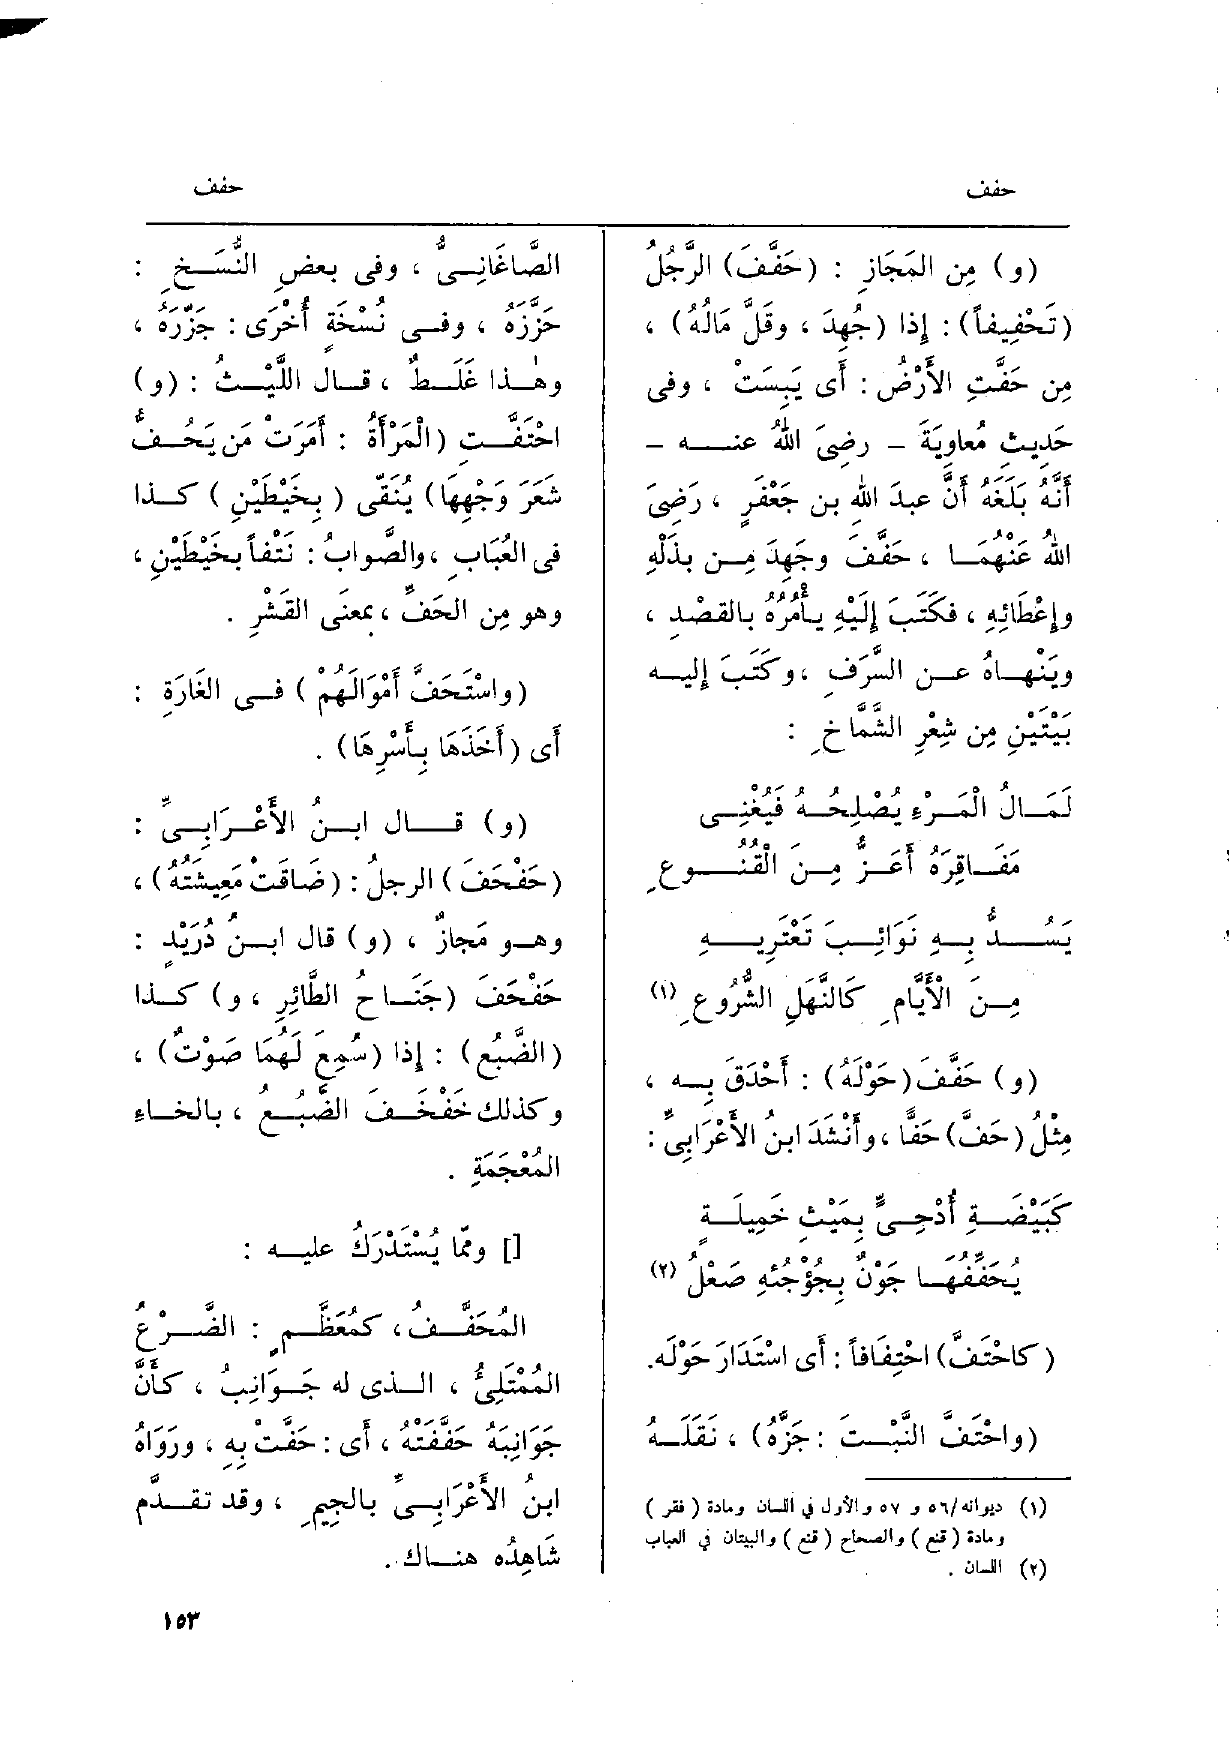 حفف
حفف
(و) مِن المَجَازِ : (حَفَّفَ) الرَّجُلُ
(تَحْفِيفاً) : إِذا (جُهِدَ ، وقَلَّ مَالُهُ) ،
مِن حَفَّتِ الأَرْضُ : أَى يَبِسَتْ ، وفى
حَدِيثِ مُعاوِيَةَ – رضِىَ اللهُ عنه –
أَنَّهُ بَلَغَهُ أَنَّ عبدَ اللهِ بن جَعْفَرٍ ، رَضِىَ
اللهُ عَنْهُمَا ، حَفَّفَ وجَهِدَ مِن بَذْلِهِ
وإِعْطَائِهِ ، فكَتَبَ إِلَيْهِ يأْمُرُهُ بالقَصْدِ ،
ويَنْهاهُ عن السَّرَفِ ، وكَتَبَ إِليه
بَيْتَيْنِ مِن شِعْرِ الشَّمَّاخِ :
لَمَالُ الْمَرْءِ يُصْلِحُهُ فَيُغْنِى
مَفَاقِرَهُ أَعَزُّ مِنَ الْقُنُوعِ
يَسُدُّ بِهِ نَوَائِبَ تَعْتَرِيهِ
مِنَ الْأَيَّامِ كَالنَّهَلِ الشُّرُوعِ (١)
(و) حَفَّفَ (حَوْلَهُ) : أَحْدَقَ بِه ،
مِثْلُ (حَفَّ) حَفًّا ، وأَنْشَدَ ابنُ الأَعْرَابِىِّ :
كَبَيْضَةِ أُدْحِىٍّ بِمَيْثِ خَمِيلَةٍ
يُحَفِّفُهَا جَوْنٌ بِجُؤْجُئِهِ صَعْلُ (٢)
(كاحْتَفَّ) احْتِفَافاً : أَى اسْتَدَارَ حَوْلَه.
(واحْتَفَّ النَّبْتَ : جَزَّهُ) ، نَقَلَهُ
(١) ديوانه/٥٦ و ٥٧ والأول في اللسان ومادة ( فقر )
ومادة ( قنع ) والصحاح ( قنع ) والبيتان في العباب
(٢) اللسان .
الصَّاغَانِىُّ ، وفى بعضِ النُّسَخِ :
حَزَزَهُ ، وفى نُسْخَةٍ أُخْرَى : جَزَّرَهُ ،
وهٰذا غَلَطٌ ، قال اللَّيْثُ : (و)
احْتَفَّتِ (الْمَرْأَةُ : أَمَرَتْ مَن يَحُفُّ
شَعَرَ وَجْهِهَا) يُنَقَّى ( بِخَيْطَيْنِ ) كذا
فى العُبَابِ ، والصَّوابُ : نَتْفاً بخَيْطَيْنِ ،
وهو مِن الحَفِّ ، بمعنى القَشْرِ .
(واسْتَحَفَّ أَمْوَالَهُمْ ) فى الغَارَةِ :
أَى (أَخَذَهَا بِأَسْرِهَا) .
(و) قال ابنُ الأَعْرَابِىِّ :
(حَفْحَفَ ) الرجلُ : (ضَاقَتْ مَعِيشَتُهُ) ،
وهو مَجازٌ ، (و) قال ابنُ دُرَيْدٍ :
حَفْحَفَ (جَنَاحُ الطَّائِرِ ، و) كذا
(الضَّبُعِ) : إِذا (سُمِعَ لَهُمَا صَوْتٌ) ،
وكذلك خَفْخَفَ الضَّبُعُ ، بالخاءِ
المُعْجَمَةِ .
[] وممّا يُسْتَدْرَكُ عليه :
المُحَفَّفُ ، كمُعَظَّمٍ : الضَّرْعُ
المُمْتَلِئُ ، الذى له جَوَانِبُ ، كأَنَّ
جَوَانِبَهُ حَفَّفَتْهُ ، أَى : حَفَّتْ بِهِ ، ورَوَاهُ
ابنُ الأَعْرَابِىِّ بالجِيمِ ، وقد تقدَّم
شاهِدُه هناك .
١٥٣